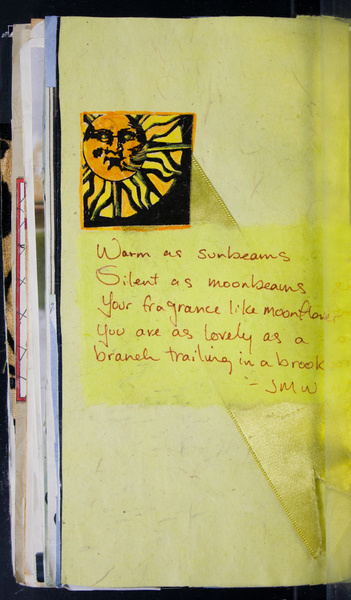 Warm as sunbeams
Silent as moonbeams
Your fragrance like moonflower
You are as lovely as a
branch trailing in a brook
- JMW